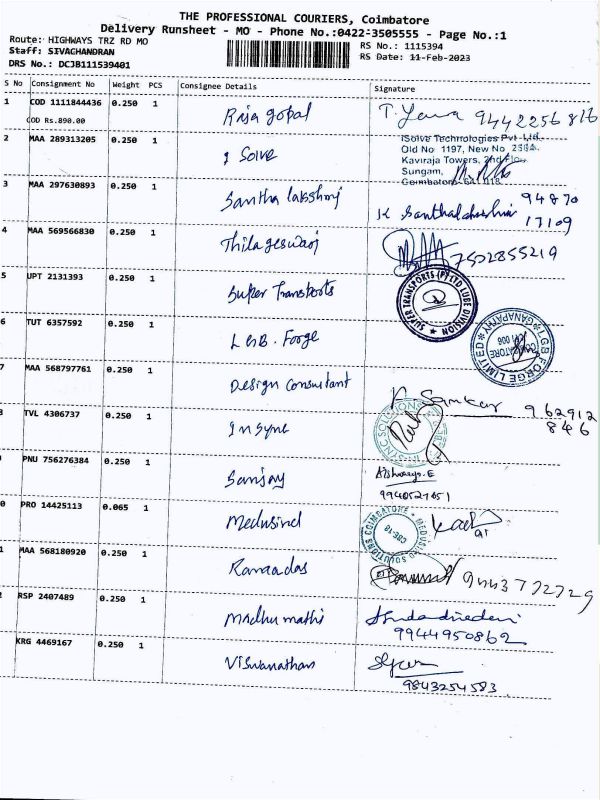 THE PROFESSIONAL COURIERS, Coimbatore
Delivery Runsheet - MO - Phone No.:0422-3505555 - Page No.:1
Route: HIGHWAYS TRZ RD MO
RS No.: 1115394
Staff: SIVACHANDRAN
RS Date: 11-Feb-2023
DRS No.: DCJB111539401
S No Consignment No Weight PCS Consignee Details Signature
1 COD 1111844436 0.250 1 Raja gopal 9442256816
COD Rs.890.00
2 MAA 289313205 0.250 1 i Solve
iSolve Technologies Pvt Ltd.
Old No 1197, New No
Kaviraja Towers, 2nd Floor
Sungam,
Coimbatore
3 MAA 297630893 0.250 1 Santha lakshmi 94870
17109
4 MAA 569566830 0.250 1 Thilageswari 7502855219
5 UPT 2131393 0.250 1 Super Transports
SUPER TRANSPORTS (P) LTD LUBE DIVISION
6 TUT 6357592 0.250 1 LGB. Forge
LGB FORGE LIMITED GANAPATHY
COIMBATORE
641 006
7 MAA 568797761 0.250 1 Design Consultant K Sankar 962912
846
8 TVL 4306737 0.250 1 Insync
PNU 756276384 0.250 1 Sanjay Aishwarya.E
9940527651
0 PRO 14425113 0.065 1 Medusind
MEDUSIND SOLUTIONS COIMBATORE
CBE-18
1 MAA 568180920 0.250 1 Ramadas 9443772729
2 RSP 2407489 0.250 1 Madhu mathi
9944950862
KRG 4469167 0.250 1 Viswanathan
9843254583